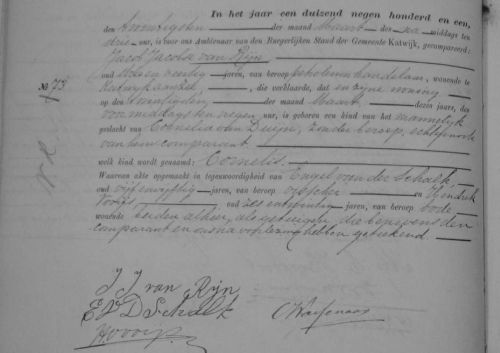 In het jaar een duizend negen honderd en een,
den twintigsten der maand Maart des na middags ten
drie ure, is voor ons Ambtenaar van den Burgerlijken Stand der Gemeente Katwijk, gecompareerd:
Jacob Jacobsz van Rijn
oud veertig jaren, van beroep handelaar, wonende te
Katwijk aan Zee, die verklaarde, dat en zijne woning
op den twintigsten der maand Maart dezes jaars, des
voormiddags ten negen ure, is geboren een kind van het mannelijk
geslacht van Cornelia van Duijn, zonder beroep, echtgenoote
van hem comparant.
welk kind wordt genaamd: Cornelis.
Waarvan akte opgemaakt in tegenwoordigheid van Engel van der Schalk,
oud vijf en vijftig jaren, van beroep en Hendrik
oud zes en twintig jaren, van beroep bode
wonende beiden alhier, als getuigen, die benevens den
comparant en ons na voorlezing hebben geteekend.
No. 73.
J J van Rijn
E V D Schalk